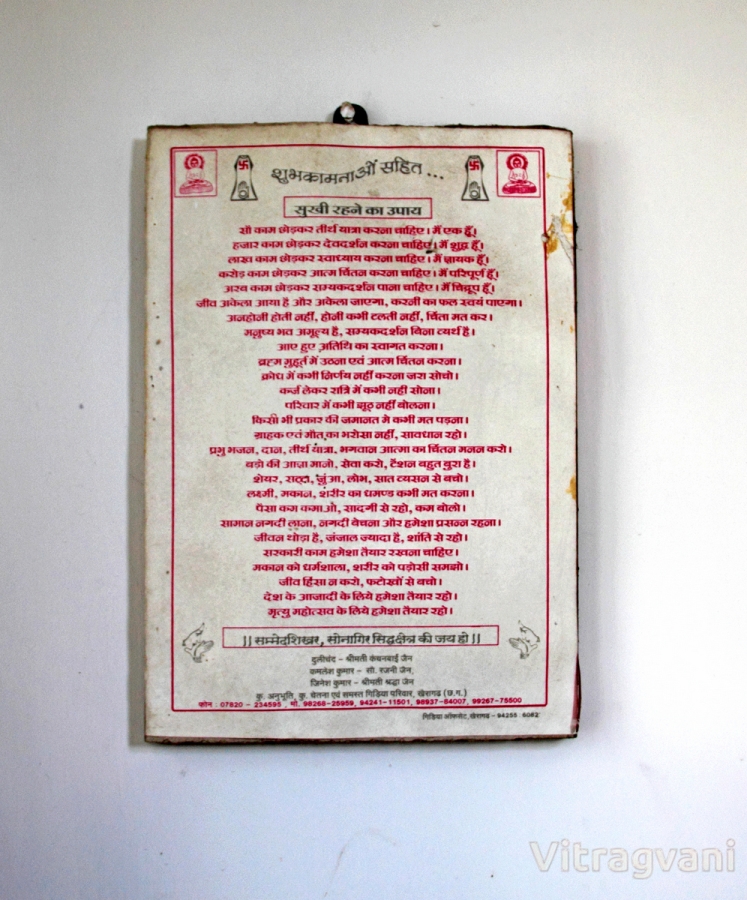 शुभकामनाओं सहित...
सुखी रहने का उपाय
सौ काम छोड़कर तीर्थ यात्रा करना चाहिए। मैं एक हूँ।
हजार काम छोड़कर देवदर्शन करना चाहिए। मैं शुद्ध हूँ।
लाख काम छोड़कर स्वाध्याय करना चाहिए। मैं ज्ञायक हूँ।
करोड़ काम छोड़कर आत्म चिंतन करना चाहिए। मैं परिपूर्ण हूँ।
अरब काम छोड़कर सम्यकदर्शन पाना चाहिए। मैं चिद्रूप हूँ।
जीव अकेला आया है और अकेला जाएगा, करनी का फल स्वयं पाएगा।
अनहोनी होती नहीं, होनी कभी टलती नहीं, चिंता मत कर।
मनुष्य भव अमूल्य है, सम्यकदर्शन बिना व्यर्थ है।
आए हुए अतिथि का स्वागत करना।
ब्रह्म मुहूर्त में उठना एवं आत्म चिंतन करना।
क्रोध में कभी निर्णय नहीं करना जरा सोचो।
कर्ज लेकर रात्रि में कभी नहीं सोना।
परिवार में कभी झूठ नहीं बोलना।
किसी भी प्रकार की जमानत मे कभी मत पड़ना।
ग्राहक एवं मौत का भरोसा नहीं, सावधान रहो।
प्रभु भजन, दान, तीर्थ यात्रा, भगवान आत्मा का चिंतन मनन करो।
बड़ो की आज्ञा मानो, सेवा करो, टेंशन बहुत बुरा है।
शेयर, सट्टा, जुंआ, लोभ, सात व्यसन से बचो।
लक्ष्मी, मकान, शरीर का घमण्ड कभी मत करना।
पैसा कम कमाओ, सादगी से रहो, कम बोलो।
सामान नगदी लाना, नगदी बेचना और हमेशा प्रसन्न रहना।
जीवन थोड़ा है, जंजाल ज्यादा है, शांति से रहो।
सरकारी काम हमेशा तैयार रखना चाहिए।
मकान को धर्मशाला, शरीर को पड़ोसी समझो।
जीव हिंसा न करो, फटाखों से बचो।
देश के आजादी के लिये हमेशा तैयार रहो।
मृत्यु महोत्सव के लिये हमेशा तैयार रहो।
|| सम्मेदशिखर, सोनागिर सिद्धक्षेत्र की जय हो ||
दुलीचंद - श्रीमती कंचनबाई जैन
कमलेश कुमार - सौ. रजनी जैन,
जिनेश कुमार - श्रीमती श्रद्धा जैन
कु. अनुभूति, कु. चेतना एवं समस्त गिड़िया परिवार, खैरागढ़ (छ.ग.)
फोन : 07820 - 234595, मो. 98268-25959, 94241-11501, 98937-84007, 99267-75500
गिड़िया ऑफसेट, खैरागढ़ - 94255 6082
Vitragvani